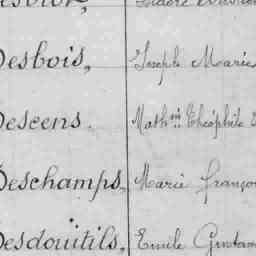 Desbois, Joseph Marie
Descens. Math.in Théophile
Deschamps, Marie Franço
Desdouitils, Emile Gusta